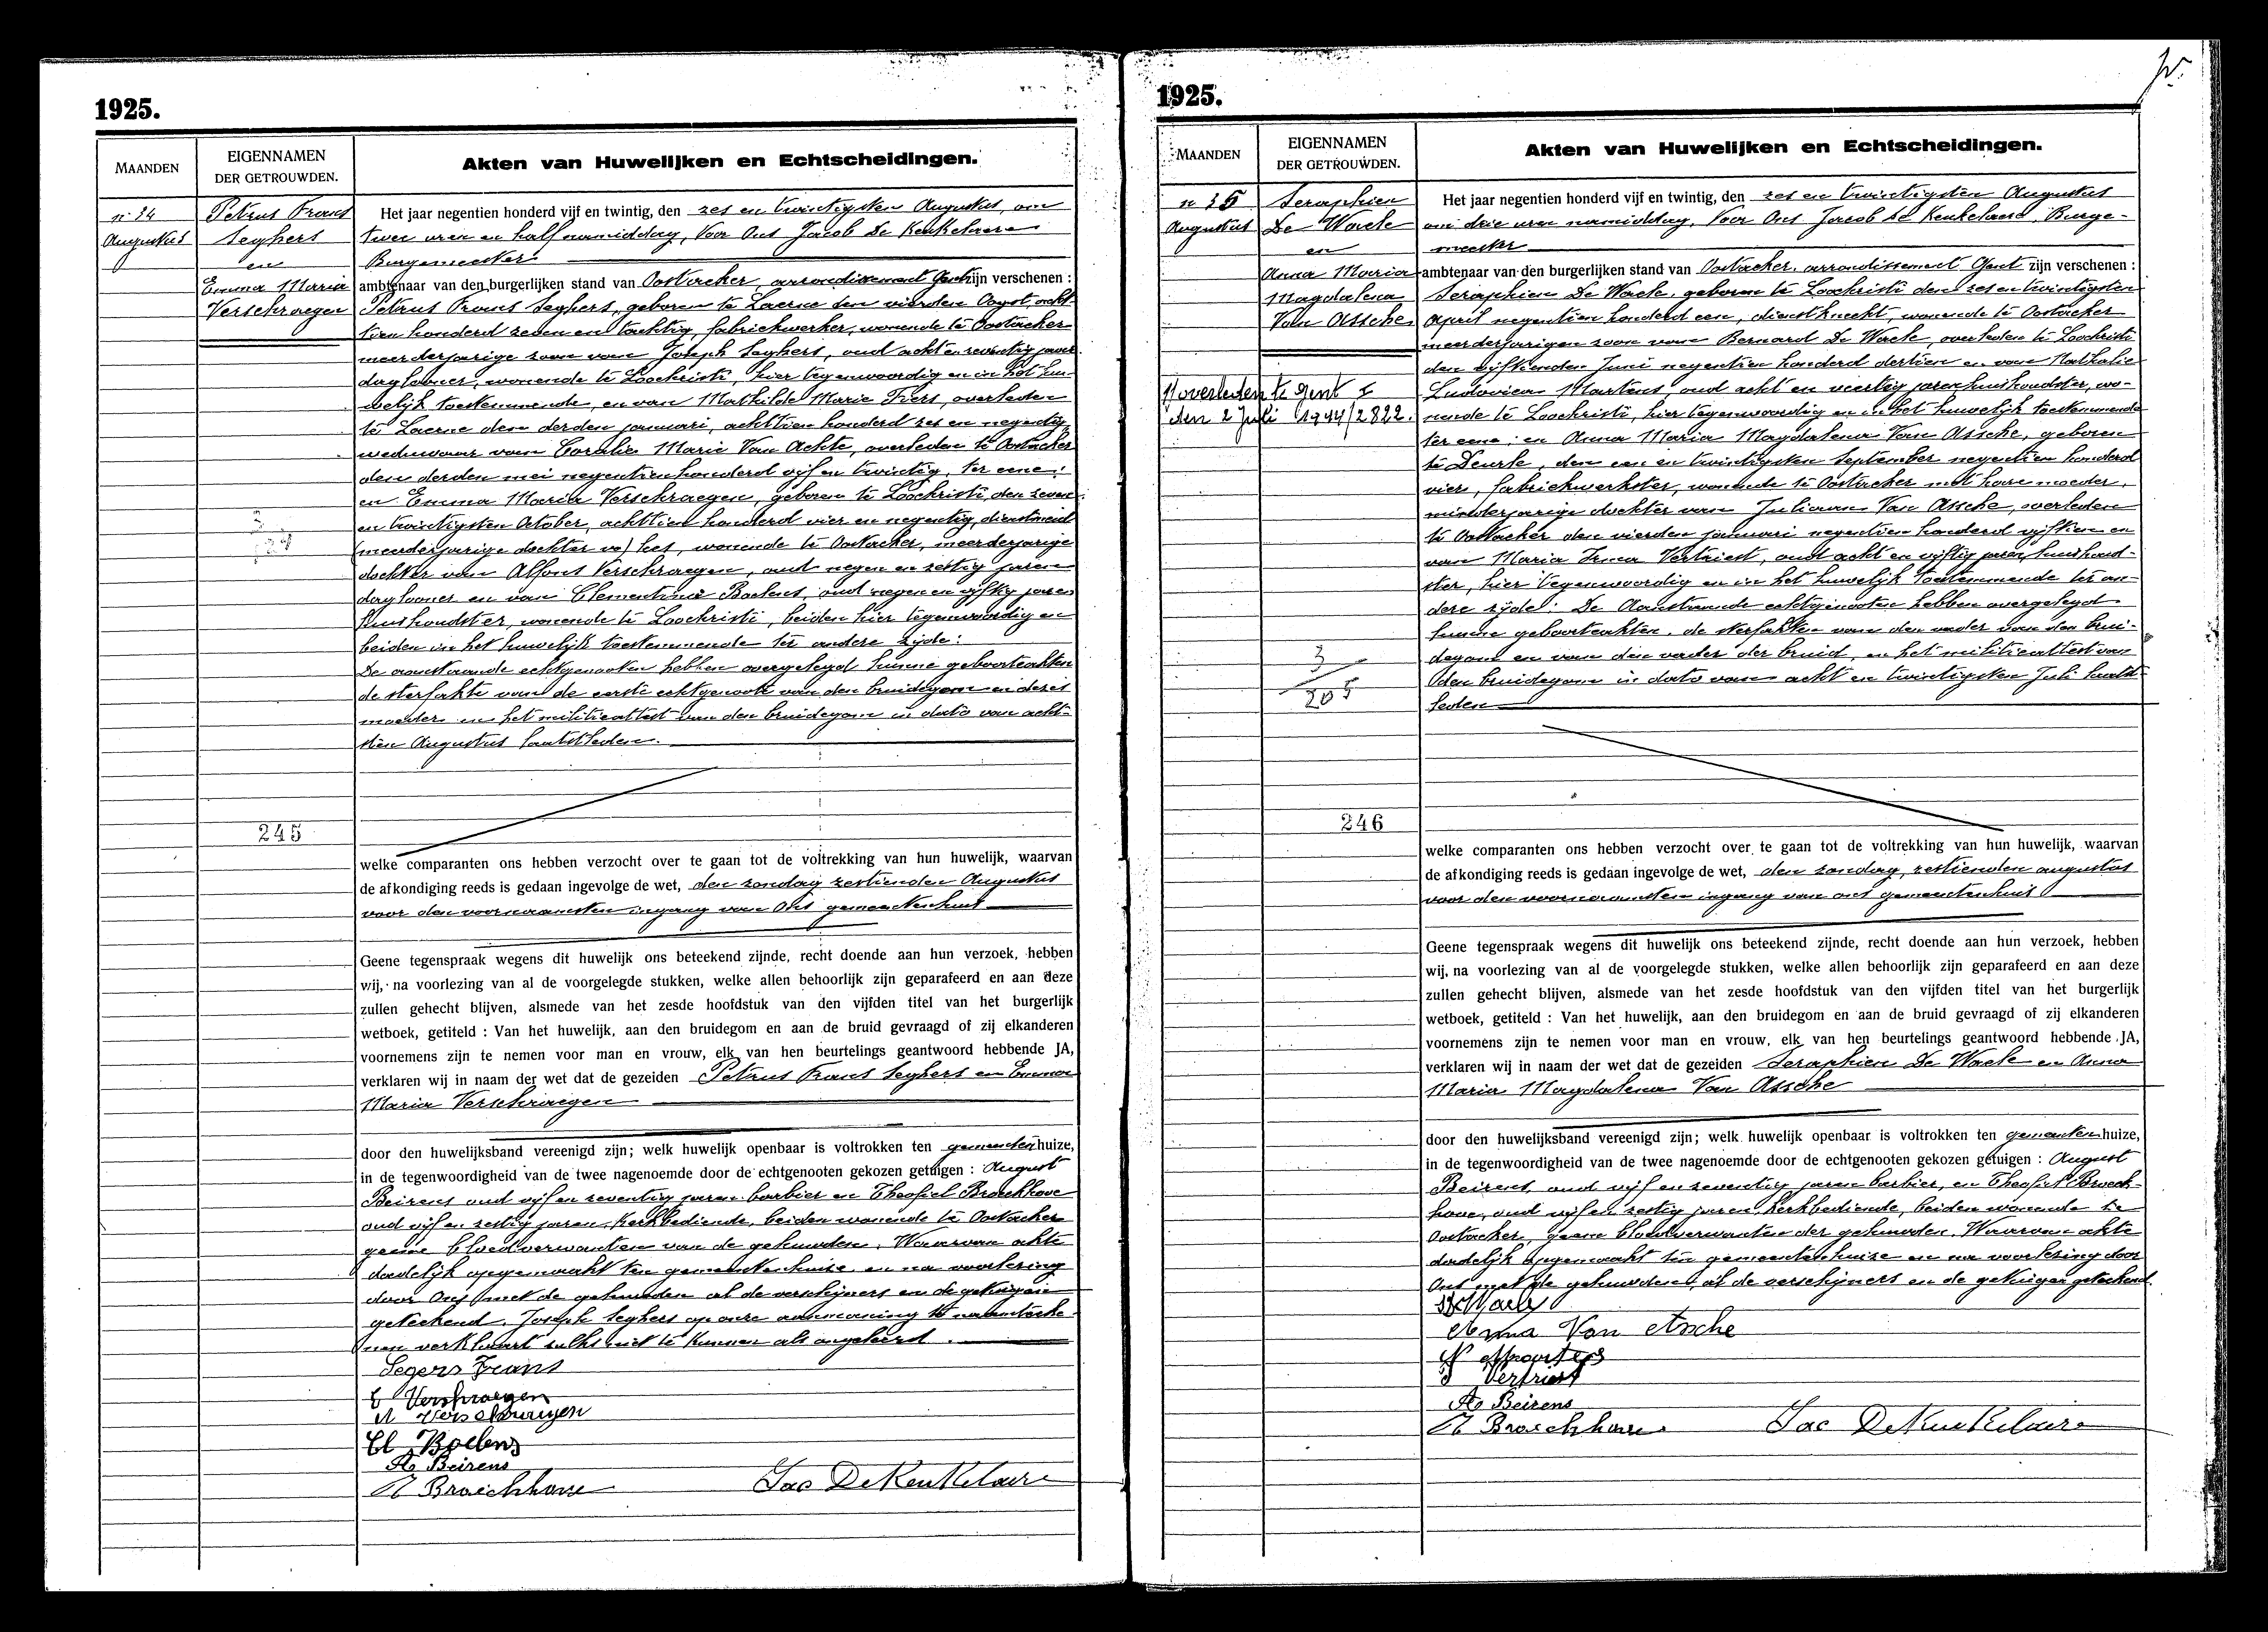 1925.
MAANDEN
EIGENNAMEN
DER GETROUWDEN.
Akten van Huwelijken en Echtscheidingen.
Augustus
Petrus Frans
Seghers
en
Emma Maria
Verschraegen
245
Het jaar negentien honderd vijf en twintig, den zes en twintigsten Augustus, om
twee uren en half namiddag, Voor Ons Jacob De Keukelaere
Burgemeester
ambtenaar van den burgerlijken stand van Oostacker, arrondissement Gent zijn verschenen :
Petrus Frans Seghers, geboren te Laerne den vierden Oogst acht-
tien honderd zeven en tachtig, fabriekwerker, wonende te Oostacker
meerderjarige zoon van Joseph Seghers, oud acht en zeventig jaren
daglooner, wonende te Loochristi, hier tegenwoordig en in het hu-
welijk toestemmende, en van Mathilde Marie Fiers, overleden
te Laerne den derden januari, achttien honderd zes en negentig,
weduwaar van Coralie Marie Van Achte, overleden te Oostacker
den derden mei negentien honderd vijf en twintig, ter eene;
en Emma Maria Verschraegen, geboren te Loochristi, den zeven
en twintigsten October, achttien honderd vier en negentig, dienstmeid
(meerderjarige dochter va) het, wonende te Oostacker, meerderjarige
dochter van Alfons Verschraegen, oud negen en zestig jaren
daglooner en van Clementina Boelens, oud negen en vijftig jaren
huishoudster, wonende te Loochristi, beiden hier tegenwoordig en
beiden in het huwelijk toestemmende ter andere zijde:
De aanstaande echtgenooten hebben overgelegd hunne geboorteakten
de sterfakte van de eerste echtgenoote van den bruidegom en dezes
moeder en het militieattest van den bruidegom in dato van acht-
tien Augustus laatstleden.
welke comparanten ons hebben verzocht over te gaan tot de voltrekking van hun huwelijk, waarvan
de afkondiging reeds is gedaan ingevolge de wet, den zondag zestienden Augustus
voor den voornaamsten ingang van Ons gemeentenhuis
Geene tegenspraak wegens dit huwelijk ons beteekend zijnde, recht doende aan hun verzoek, hebben
wij, na voorlezing van al de voorgelegde stukken, welke allen behoorlijk zijn geparafeerd en aan deze
zullen gehecht blijven, alsmede van het zesde hoofdstuk van den vijfden titel van het burgerlijk
wetboek, getiteld : Van het huwelijk, aan den bruidegom en aan de bruid gevraagd of zij elkanderen
voornemens zijn te nemen voor man en vrouw, elk van hen beurtelings geantwoord hebbende JA,
verklaren wij in naam der wet dat de gezeiden Petrus Frans Seghers en Emma
Maria Verschraegen
door den huwelijksband vereenigd zijn; welk huwelijk openbaar is voltrokken ten gemeentenhuize,
in de tegenwoordigheid van de twee nagenoemde door de echtgenooten gekozen getuigen : August
Beirens oud vijf en zeventig jaren barbier en Theofiel Broeckhove
oud vijf en zestig jaren, kerkbediende, beiden wonende te Oostacker
geene bloedverwanten van de gehuwden. Waarvan akte
dadelijk opgemaakt ten gemeentenhuize en na voorlezing
door Ons met de gehuwden al de verschijners en de getuigen
geteekend. Joseph Seghers op onze aanmaning te naamteeke-
nen verklaart zulks niet te kunnen als ongeleerd.
Segers Frans
E Verschraegen
A Verschraegen
Cl Boelens
Ao Beirens
Th Broeckhove
Jac DeKeukelaire
1925.
MAANDEN
EIGENNAMEN
DER GETROUWDEN.
Akten van Huwelijken en Echtscheidingen.
Augustus
Seraphien
De Waele
en
Anna Maria
Magdalena
Van Assche
overleden te Gent
den 2 Juli 1944/2822.
3
205
246
Het jaar negentien honderd vijf en twintig, den zes en twintigsten Augustus
om drie uren namiddag, Voor Ons Jacob De Keukelaere, Burge-
meester
ambtenaar van den burgerlijken stand van Oostacker, arrondissement Gent zijn verschenen :
Seraphien De Waele, geboren te Loochristi den zes en twintigsten
April negentien honderd een, dienstknecht, wonende te Oostacker
meerderjarigen zoon van Bernard De Waele, overleden te Loochristi
den vijftienden Juni negentien honderd dertien en van Nathalie
Ludovica Martens, oud acht en veertig jaren huishoudster, wo-
nende te Loochristi, hier tegenwoordig en in het huwelijk toestemmende
ter eene; en Anna Maria Magdalena Van Assche, geboren
te Deurle, den een en twintigsten September negentien honderd
vier, fabriekwerkster, wonende te Oostacker met hare moeder,
minderjarige dochter van Juliaan Van Assche, overleden
te Oostacker den vierden januari negentien honderd vijftien en
van Maria Irma Vertriest, oud acht en vijftig jaren, huishoud-
ster, hier tegenwoordig en in het huwelijk toestemmende ter an-
dere zijde: De Aanstaande echtgenooten hebben overgelegd
hunne geboorteakten, de sterfakten van den vader van den brui-
degom en van den vader der bruid, en het militieattest van
den bruidegom in dato van acht en twintigsten Juli laatst-
leden
welke comparanten ons hebben verzocht over te gaan tot de voltrekking van hun huwelijk, waarvan
de afkondiging reeds is gedaan ingevolge de wet, den zondag, zestienden augustus
voor den voornaamsten ingang van ons gemeentenhuis
Geene tegenspraak wegens dit huwelijk ons beteekend zijnde, recht doende aan hun verzoek, hebben
wij, na voorlezing van al de voorgelegde stukken, welke allen behoorlijk zijn geparafeerd en aan deze
zullen gehecht blijven, alsmede van het zesde hoofdstuk van den vijfden titel van het burgerlijk
wetboek, getiteld : Van het huwelijk, aan den bruidegom en aan de bruid gevraagd of zij elkanderen
voornemens zijn te nemen voor man en vrouw, elk van hen beurtelings geantwoord hebbende JA,
verklaren wij in naam der wet dat de gezeiden Seraphien De Waele en Anna
Maria Magdalena Van Assche
door den huwelijksband vereenigd zijn; welk huwelijk openbaar is voltrokken ten gemeentenhuize,
in de tegenwoordigheid van de twee nagenoemde door de echtgenooten gekozen getuigen : August
Beirens, oud vijf en zeventig jaren barbier, en Theofiel Broeck-
hove, oud vijf en zestig jaren, kerkbediende, beiden wonende te
Oostacker, geene bloedverwanten der gehuwden. Waarvan akte
dadelijk opgemaakt ten gemeentenhuize en na voorlezing door
Ons met de gehuwden al de verschijners en de getuigen geteekend.
Anna Van Asche
Vertriest
Ao Beirens
Th Broeckhove
Jac DeKeukelaire